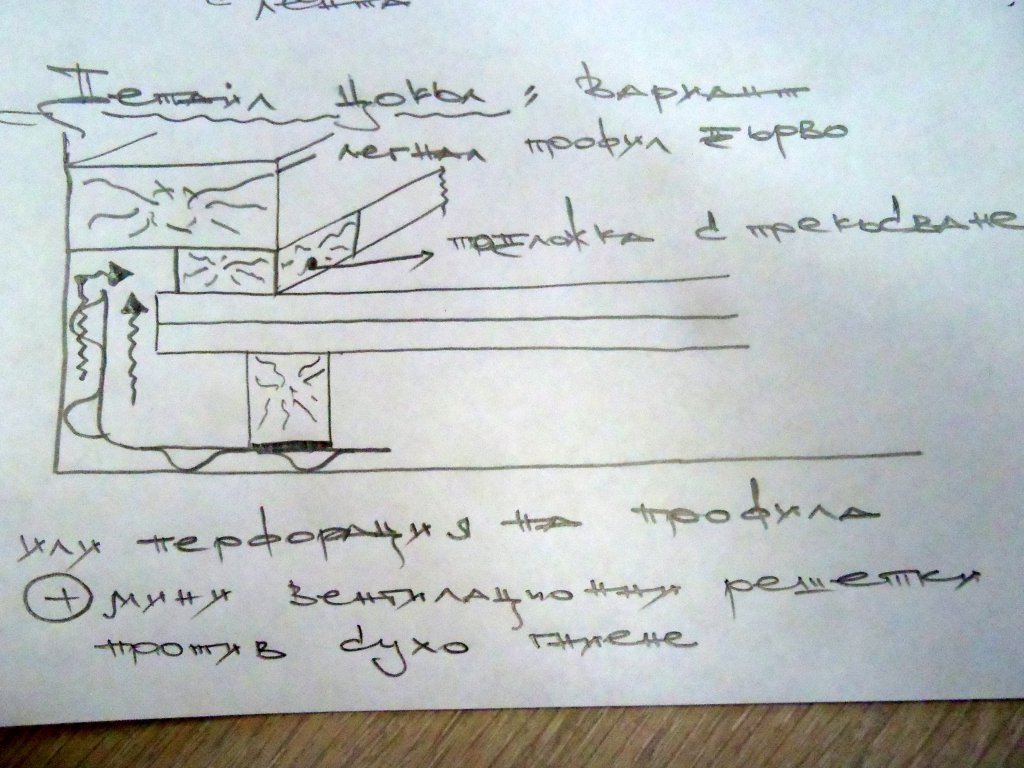 лента
Детайл цокъл, вариант
легнал профил дърво
подложка с прекъсване
или перфорация на профила
+ мини вентилационни решетки
против сухо гниене